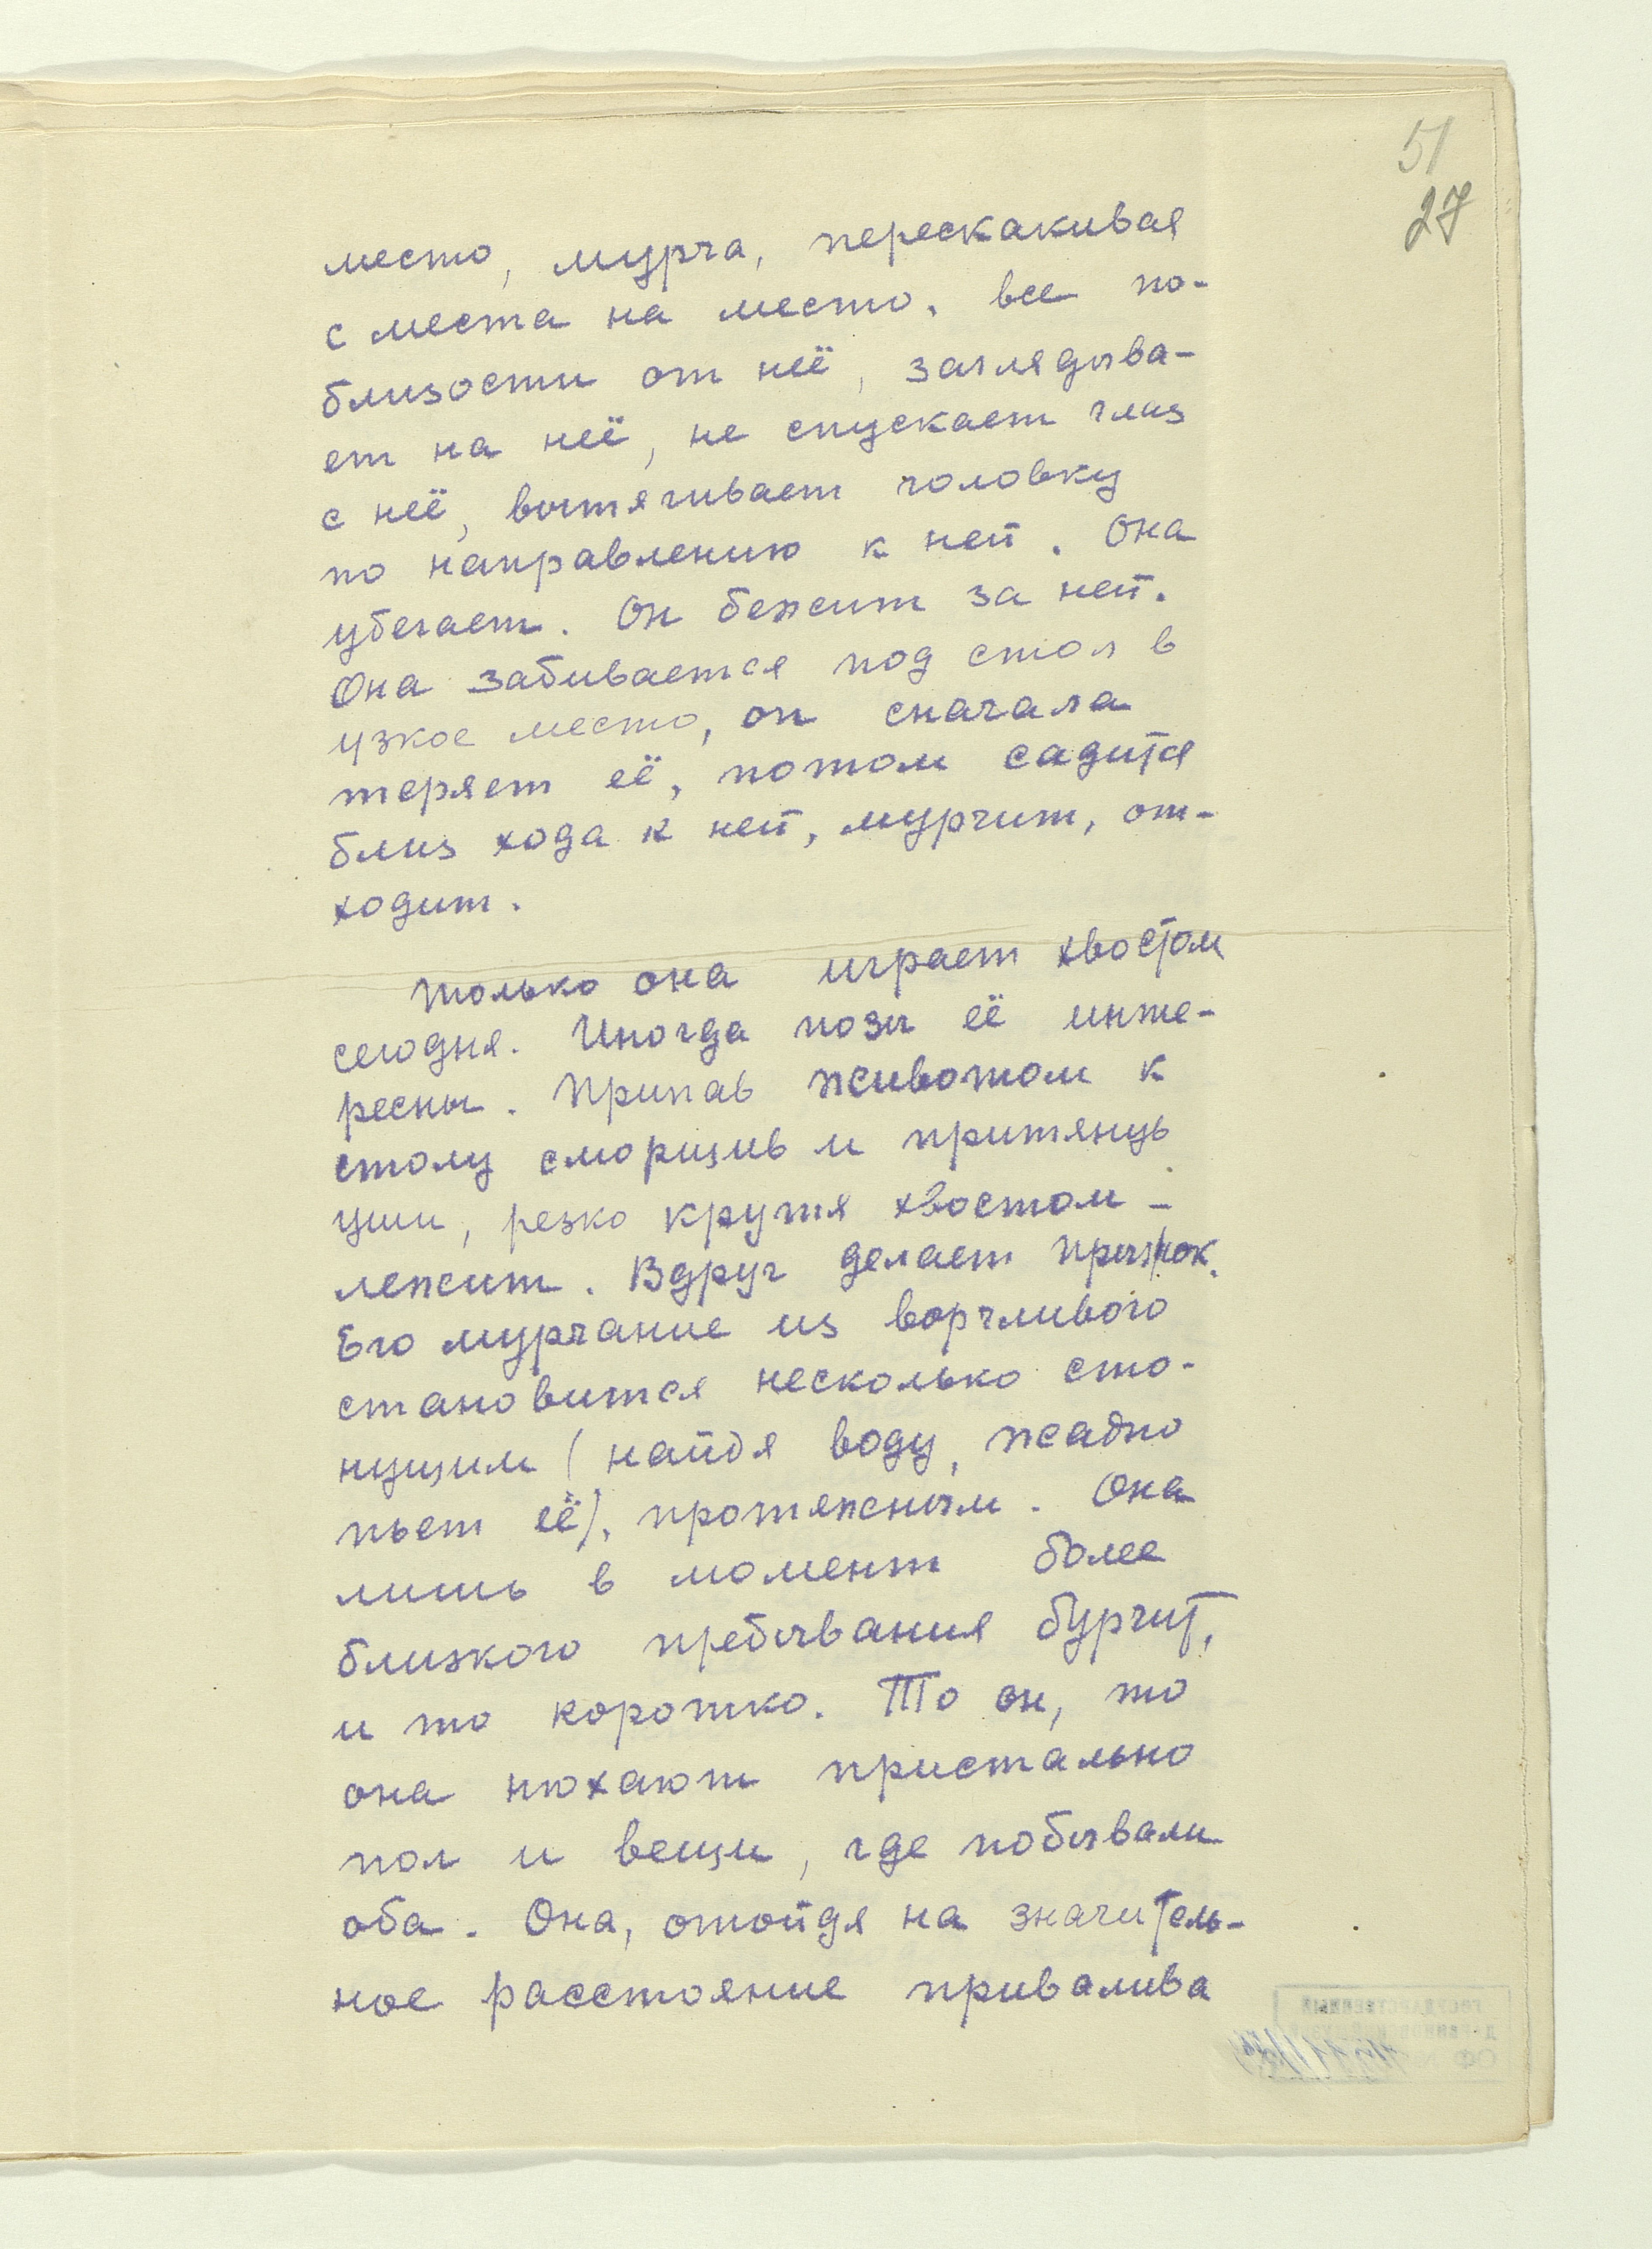 51
27
место, мурча, перескакивая
с места на место. все по-
близости от неё, заглядыва-
ет на неё, не спускает глаз
с неё, вытягивает головку
по направлению к ней. Она
убегает. Он бежит за ней.
Она забивается под стол в
узкое место, он сначала
теряет её, потом садится
близ хода к ней, мурчит, от-
ходит.
Только она играет хвостом
сегодня. Иногда позы её инте-
ресны. Припав животом к
столу сморщив и притянув
уши, резко крутя хвостом –
лежит. Вдруг делает прыжок.
Его мурчание из ворчливого
становится несколько сто-
нущим (найдя воду, жадно
пьет её), протяжным. Она
лишь в момент более
близкого пребывания бурчит,
и то коротко. То он, то
она нюхают пристально
пол и вещи, где побывали
оба. Она, отойдя на значитель-
ное расстояние привалива
ГОСУДАРСТВЕННЫЙ
ДАРВИНОВСКИЙ МУЗЕЙ
ОФ №